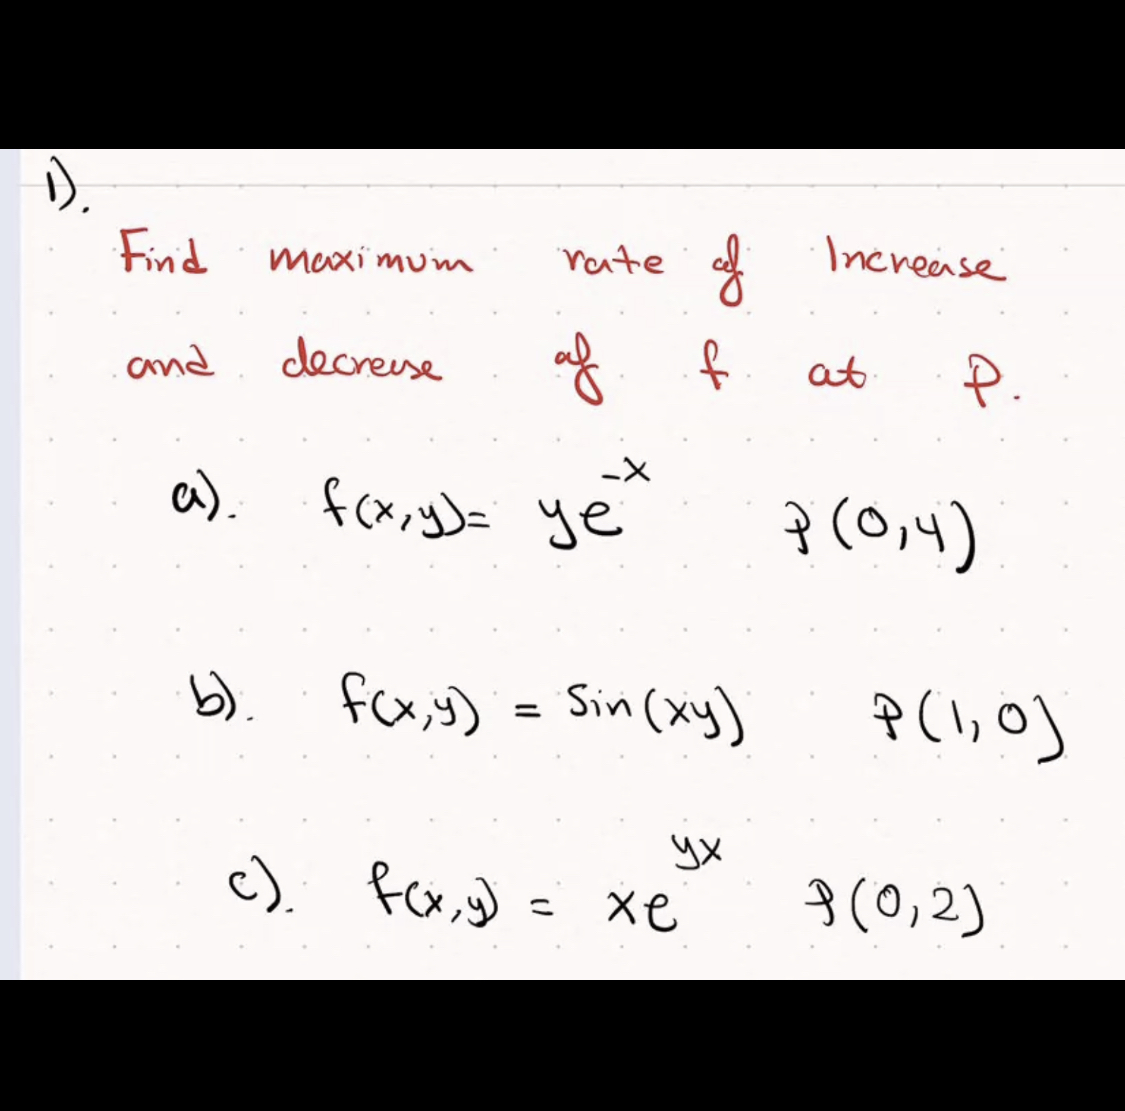 1).
Find maximum rate of Increase
and decrease of f at P.
a). f(x,y)= ye^{-x} P(0,4)
b). f(x,y) = Sin(xy) P(1,0)
c). f(x,y) = xe^{yx} P(0,2)